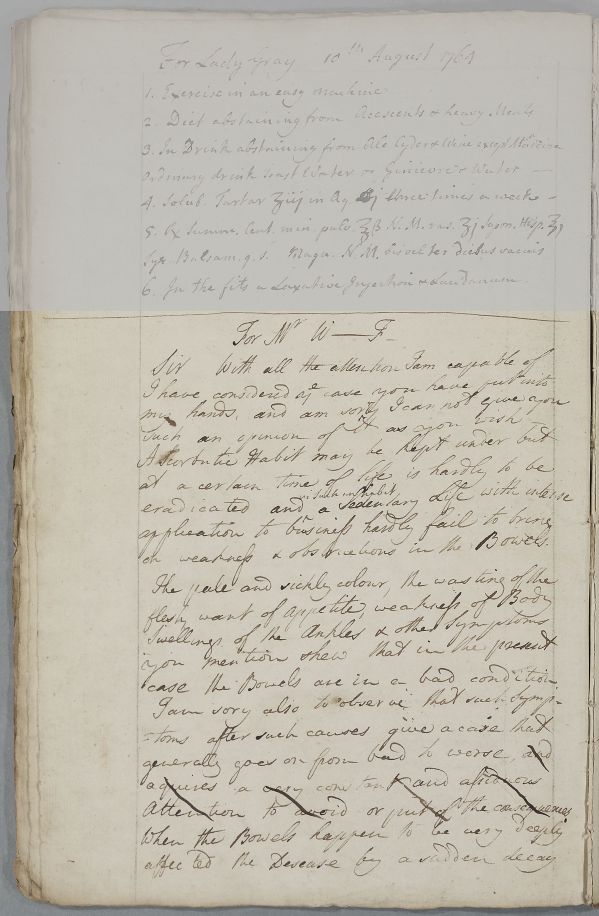 For Lady Gray 10th August 1764
1. Exercise in an easy machine
2. Diet abstaining from Acescents & heavy Meals
3. In Drink abstaining from Ale Cyder & Wine except
Ordinary drink Toast Water or Water —
4. Solub. Tartar in Aq. three times a week -
5. Rx Summ. Cent. min. pulv. N. M. ras.
Syr. Balsam. q. s. Magn. N. M.
6. In the fits a Laxative Injection & Laudanum.
For Mr W — F -
Sir With all the attention I am capable of
I have considered ye case you have put into
my hands, and am sorry I can not give you
such an opinion of it as you wish —
A Scorbutic Habit may be kept under but
at a certain time of life is hardly to be
in such an habit
eradicated and a Sedentary Life with intense
application to business hardly fail to bring
on weakness & obstructions in the Bowels.
The pale and sickly colour, the wasting of the
flesh, want of appetite, weakness of Body
Swellings of the Ankles & other Symptoms
you mention shew that in the present
case the Bowels are in a bad condition
I am sory also to observe that such Symp-
-toms after such causes give a case that
generally goes on from bad to worse, and
aquires a very constant and assiduous
Attention to avoid or put of the consequences
When the Bowels happen to be very deeply
affected the Desease by a sudden decay